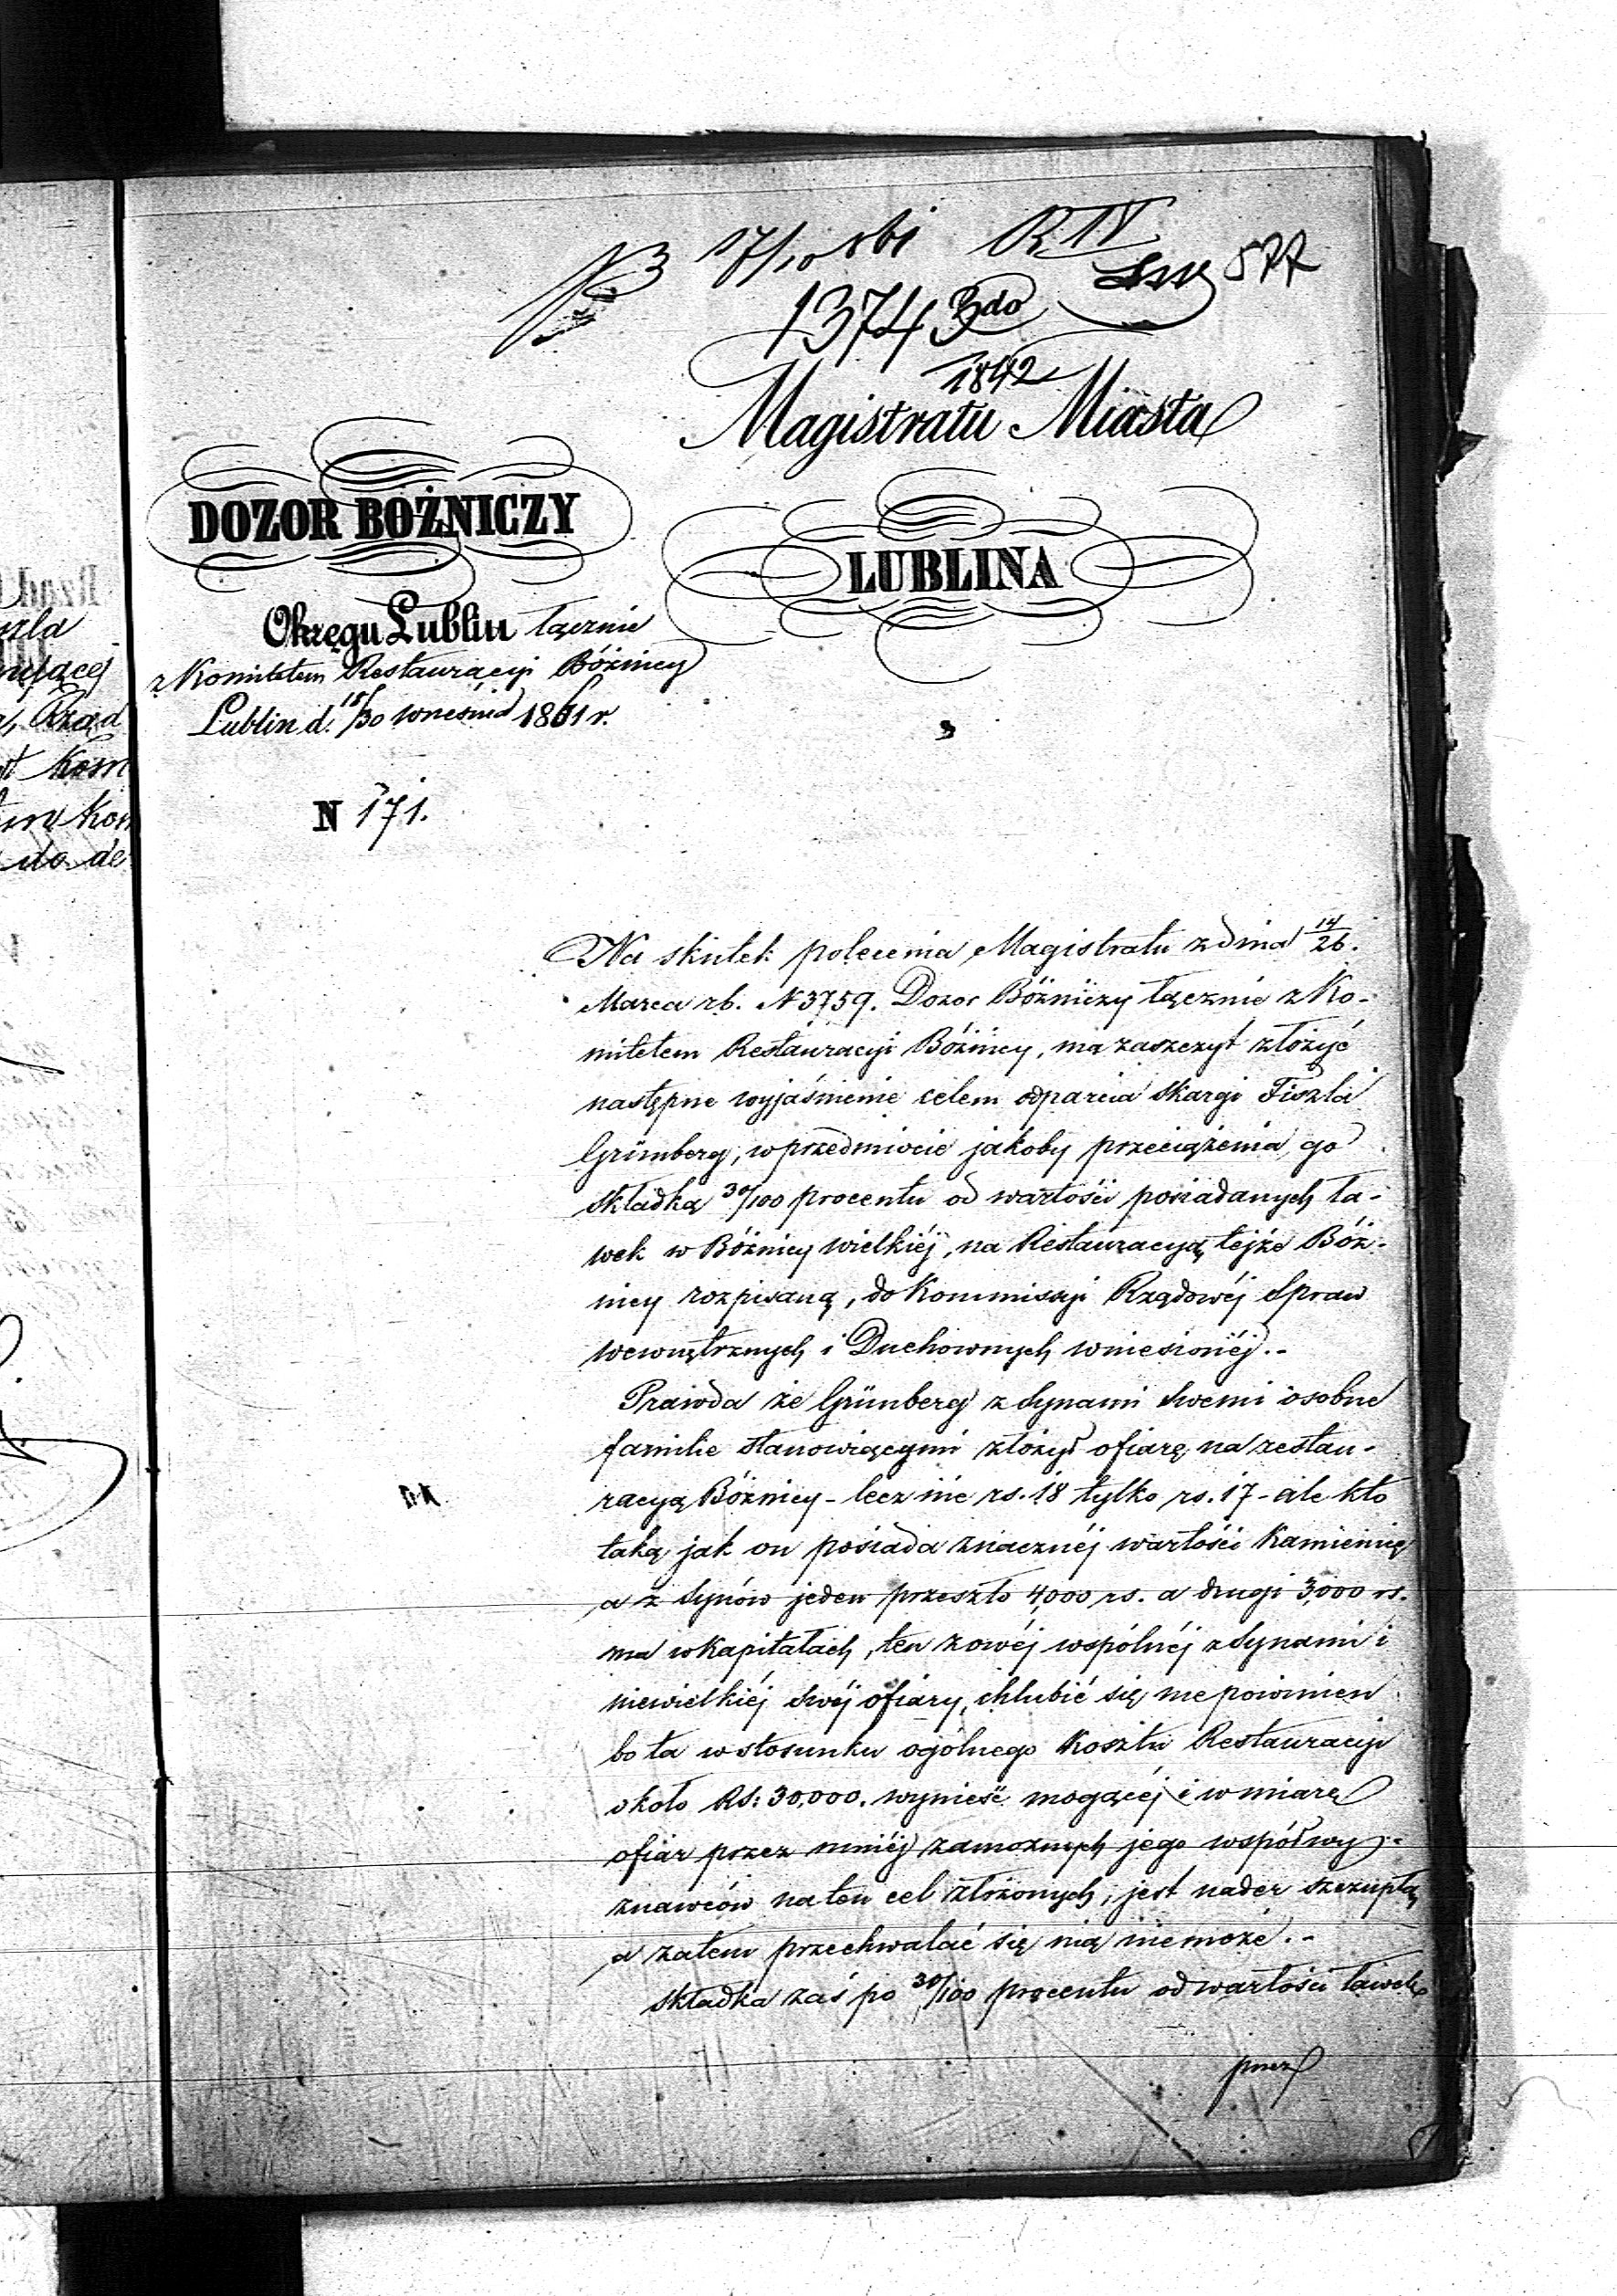 17/10 861 R IV
577
13743do
1842
Magistratu Miasta
DOZOR BOŻNICZY
LUBLINA
Okręgu Lublin łącznie
z Komitetem Restauracyi Bóżnicy
Lublin d. 18/30 Wrześnid 1861 r.
N 171.
Na skutek polecenia Magistratu z dnia 14/26.
Marca rb. N 3759. Dozor Bóżniczy łącznie z Ko-
mitetem Restauracyi Bóżnicy, ma zaszczyt złożyć
następne wyjaśnienie celem odparcia skargi Fiszla
Grünberg, w przedmiocie jakoby przeciążenia go
składką 30/100 procentu od wartości posiadanych ła-
wek w Bóżnicy wielkiéj, na Restauracyą tejże Bóż-
nicy rozpisaną, do Kommissyi Rządowéj Spraw
wewnętrznych i Duchownych wniesionéj.-
Prawda że Grünberg z Synami Swemi osobne
familie stanowiącymi złożył ofiarę na restau-
racyą Bóżnicy - lecz nie rs. 18 tylko rs. 17 - ale kto
taką jak on posiada znacznéj wartości Kamienicę
a z Synów jeden przeszło 4,000 rs. a drugi 3,000 rs.
ma w Kapitałach, ten z owéj wspólnéj z Synami i
niewielkiéj Swéj ofiary, chlubić się nie powinien
bo ta w stosunku ogólnego Kosztu Restauracyi
około RS: 30,000. wynieść mogącéj i w miarę
ofiar przez mniéj zamożnych jego współwy-
znawców na ten cel złożonych, jest nader szczupłą,
a zatem przechwalać się nią nie może.-
Składka zaś po 30/100 procentu od wartości ławek
przez